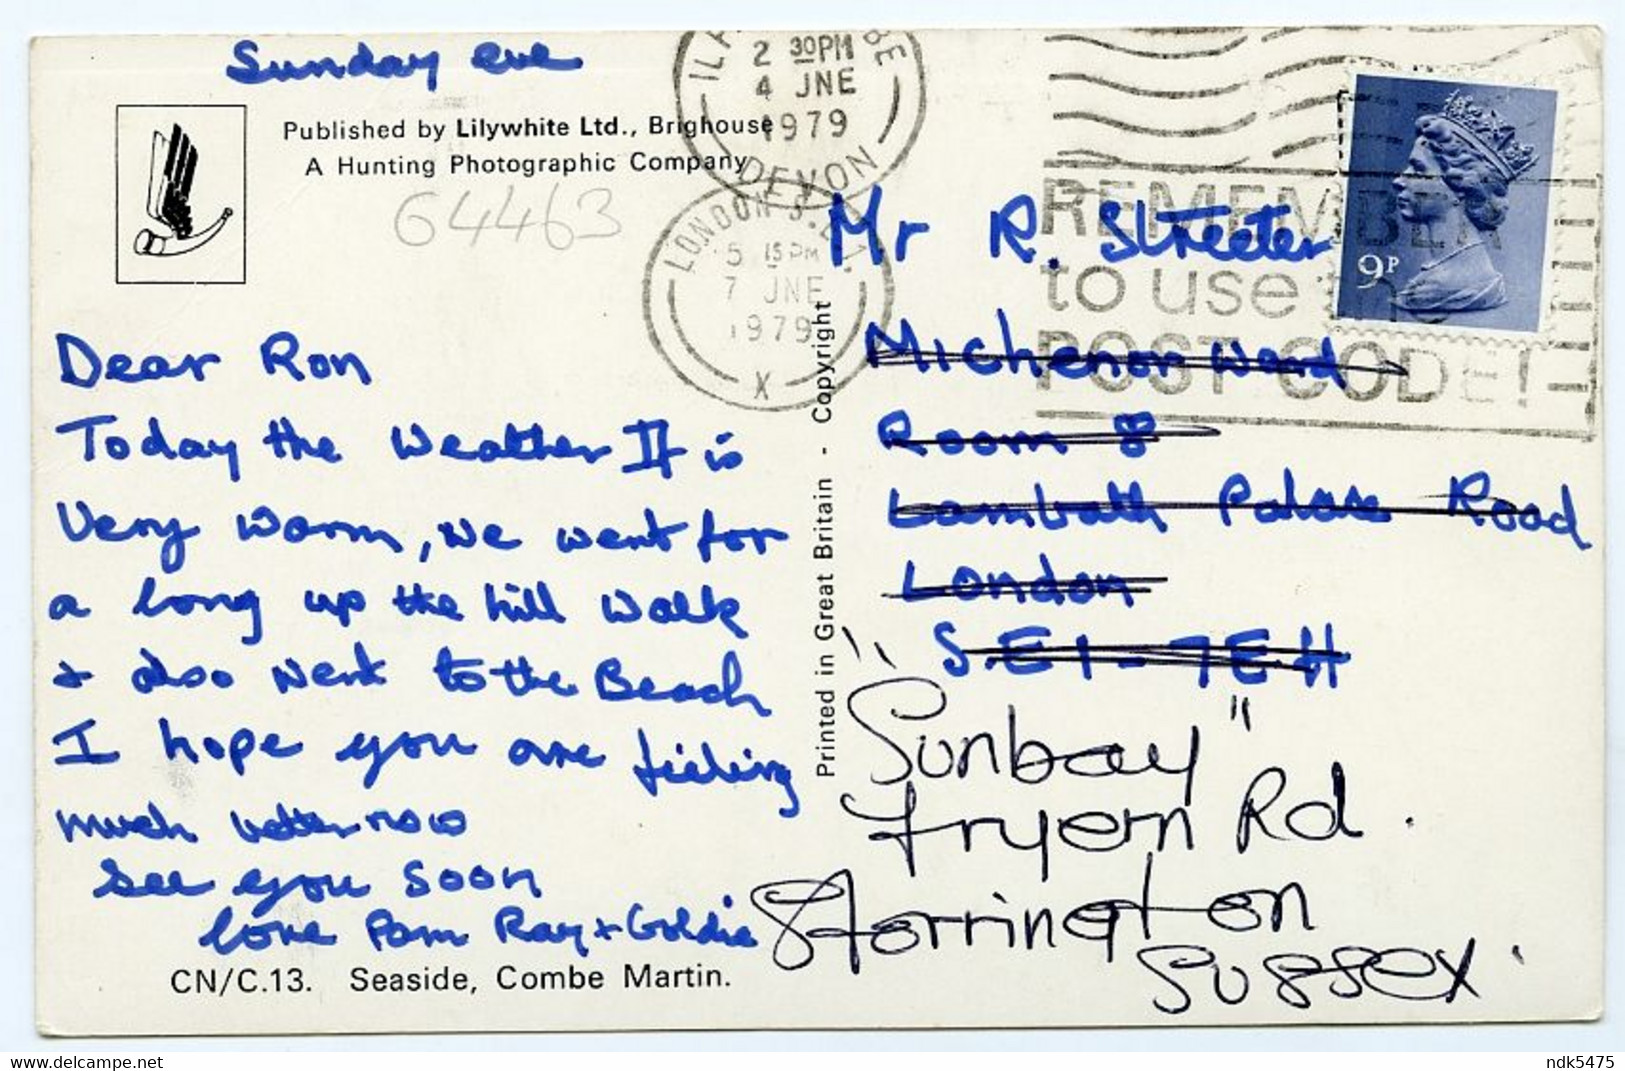 Sunday eve
Published by Lilywhite Ltd., Brighouse
A Hunting Photographic Company
64463
Dear Ron
Today the Weather It is
Very warm, we went for
a long up the hill walk
+ also went to the Beach
I hope you are feeling
much better now
See you soon
love Pam Ray + Goldie
CN/C.13. Seaside, Combe Martin.
Printed in Great Britain - Copyright
2 30PM
4 JNE
1979
DEVON
LONDON S.E.1.
5 15PM
7 JNE
1979
X
REMEMBER
to use the
POST CODE!
9P
Mr R. Streeter
Michenor Ward
Room 8
Lambath Palace Road
London
S.E.1 - 7E.H
"Sunbay"
Fryern Rd.
Storrington
Sussex.
https://www.delcampe.net
ndk5475